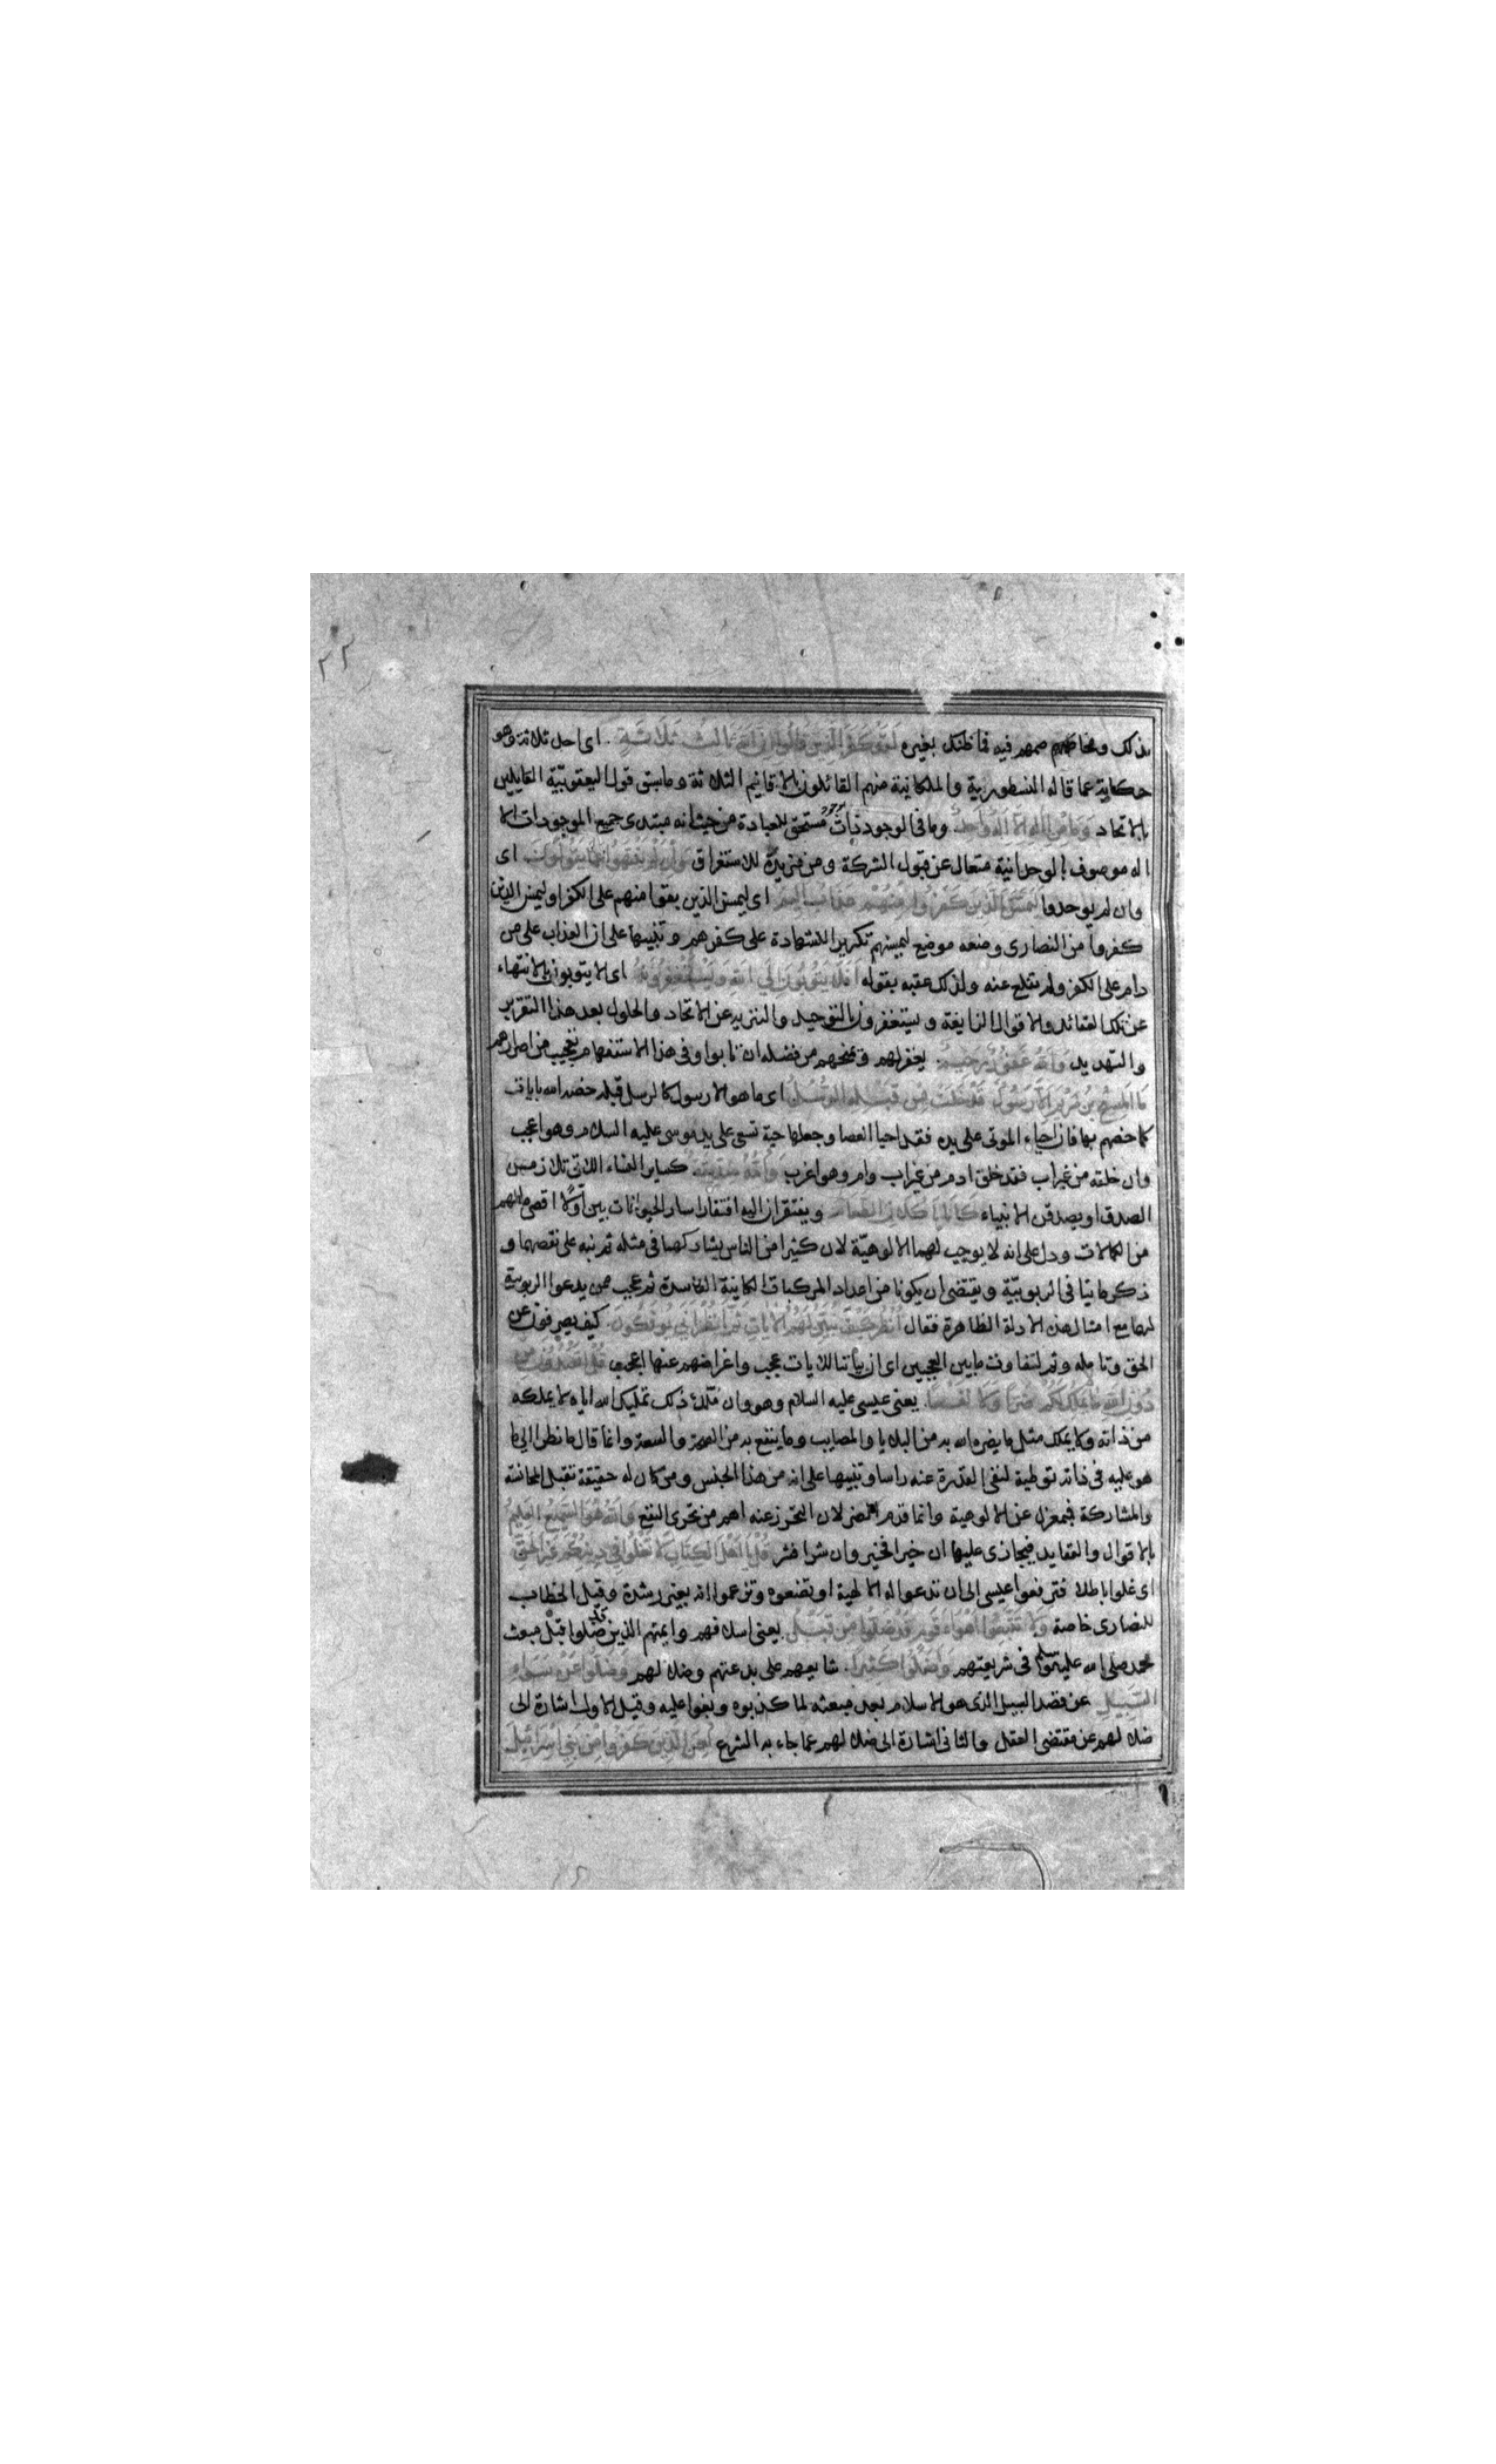 ٢٢
بذلك ومخاصمهم فيه فما ظنك بغيره لقد كفر الذين قالوا ان الله ثالث ثلاثة. اى احد ثلاثة وهو
حكاية عما قاله النسطورية والملكانية منهم القائلون بالاقانيم الثلاثة وما سبق قول اليعقوبية القايلين
بالاتحاد وما من اله الا اله واحد. وما فى الوجود ذات مستحق للعبادة من حيث انه مبتدى جميع الموجودات الا
اله موصوف بالوحدانية متعال عن قبول الشركة ومن مزيدة للاستغراق وان لم ينتهوا عما يقولون. اى
وان لم يوحدوا ليمسن الذين كفروا منهم عذاب اليم اى ليمسن الذين بقوا منهم على الكفر او ليمسن الذين
كفروا من النصارى وضعه موضع ليمسنهم تكريرا للشهادة على كفرهم وتنبيها على ان العذاب على من
دام على الكفر ولم ينقلع عنه ولذلك عقبه بقوله افلا يتوبون الى الله ويستغفرونه اى الا يتوبون بالانتهاء
عن تلك العقائد والاقوال الزايغة ويستغفرون بالتوحيد والتنزيه عن الاتحاد والحلول بعد هذا التقرير
والتهديد والله غفور رحيم. يغفر لهم ويمنحهم من فضله ان تابوا وفى هذا الاستفهام تعجيب من اصرارهم
ما المسيح بن مريم الا رسول قد خلت من قبله الرسل اى ما هو الا رسول كالرسل قبله خصه الله بايات
كما خصهم بها فان احياء الموتى على يده فقد احيا العصا وجعلها حية تسعى على يد موسى عليه السلام وهو اعجب
وان خلقه من غير اب فقد خلق ادم من غير اب وام وهو اغرب وامه صديقة. كساير النساء اللاتى تلازمن
الصدق او يصدقن الانبياء كانا ياكلان الطعام ويفتقران اليه افتقار ساير الحيوانات بين اولا اقصى ما لهم
من الكمالات ودل على انه لا يوجب لهما الالوهية لان كثيرا من الناس يشاركهما فى مثله ثم نبه على نقصهما و
ذكر ما ينافى الربوبية ويقتضى ان يكونا من اعداد المركبات الكاينة الفاسدة ثم عجب ممن يدعوا الربوبية
لهما مع امثال هذه الادلة الظاهرة فقال انظر كيف نبين لهم الايات ثم انظر انى يوفكون. كيف يصرفون عن
الحق وتامله وثم لتفاوت ما بين العجبين اى ان بياننا للايات عجب واعراضهم عنها اعجب قل اتعبدون من
دون الله ما لا يملك لكم ضرا ولا نفعا. يعنى عيسى عليه السلام وهو وان ملك ذلك تمليك الله اياه لا يملكه
من ذاته ولا يملك مثل ما يضره الله به من البلايا والمصايب وما ينفع به من الصحة والسعة وانما قال ما نظرا الى ما
هو عليه فى ذاته توطية لنفى القدرة عنه راسا وتنبيها على انه من هذا الجنس ومن كان له حقيقة تقبل المجانسة
والمشاركة فبمعزل عن الالوهية وانما قدم الضر لان التحرز عنه اهم من تحرى النفع والله هو السميع العليم
بالاقوال والعقايد فيجازى عليها ان خيرا فخير وان شرا فشر قل يا اهل الكتاب لا تغلوا فى دينكم غير الحق
اى غلوا باطلا فترفعوا عيسى الى ان تدعوا له الالهية او تضعوه وتزعموا انه بغير رشدة وقيل الخطاب
للنصارى خاصة ولا تتبعوا اهواء قوم قد ضلوا من قبل يعنى اسلافهم وايمتهم الذين قد ضلوا قبل مبعث
محمد صلى الله عليه وسلم فى شريعتهم واضلوا كثيرا. شايعهم على بدعتهم وضلالهم وضلوا عن سواء
السبيل عن قصد السبيل الذى هو الاسلام بعد مبعثه لما كذبوه وبغوا عليه وقيل الاول اشارة الى
ضلالهم عن مقتضى العقل والثانى اشارة الى ضلالهم عما جاء به الشرع لعن الذين كفروا من بنى اسرائيل